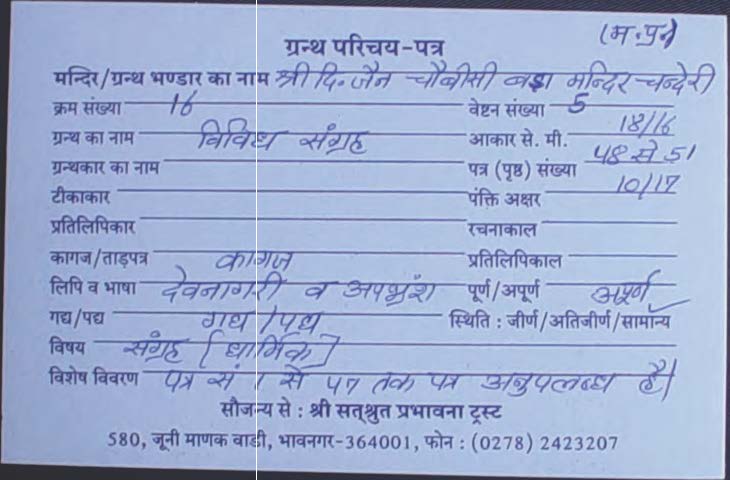 (म.प्र.)
ग्रन्थ परिचय-पत्र
मन्दिर/ग्रन्थ भण्डार का नाम श्री दि. जैन चौबीसी बड़ा मन्दिर चन्देरी
क्रम संख्या 16 वेष्टन संख्या 5
ग्रन्थ का नाम विविध संग्रह आकार से. मी. 18/16
ग्रन्थकार का नाम पत्र (पृष्ठ) संख्या ५८ से 51
टीकाकार पंक्ति अक्षर 10/17
प्रतिलिपिकार रचनाकाल
कागज/ताड़पत्र कागज प्रतिलिपिकाल
लिपि व भाषा देवनागरी व अपभ्रंश पूर्ण/अपूर्ण अपूर्ण
गद्य/पद्य गद्य/पद्य स्थिति : जीर्ण/अतिजीर्ण/सामान्य
विषय संग्रह (धार्मिक)
विशेष विवरण पत्र सं 1 से ५७ तक पत्र अनुपलब्ध है।
सौजन्य से : श्री सत्श्रुत प्रभावना ट्रस्ट
580, जूनी माणक वाडी, भावनगर-364001, फोन : (0278) 2423207